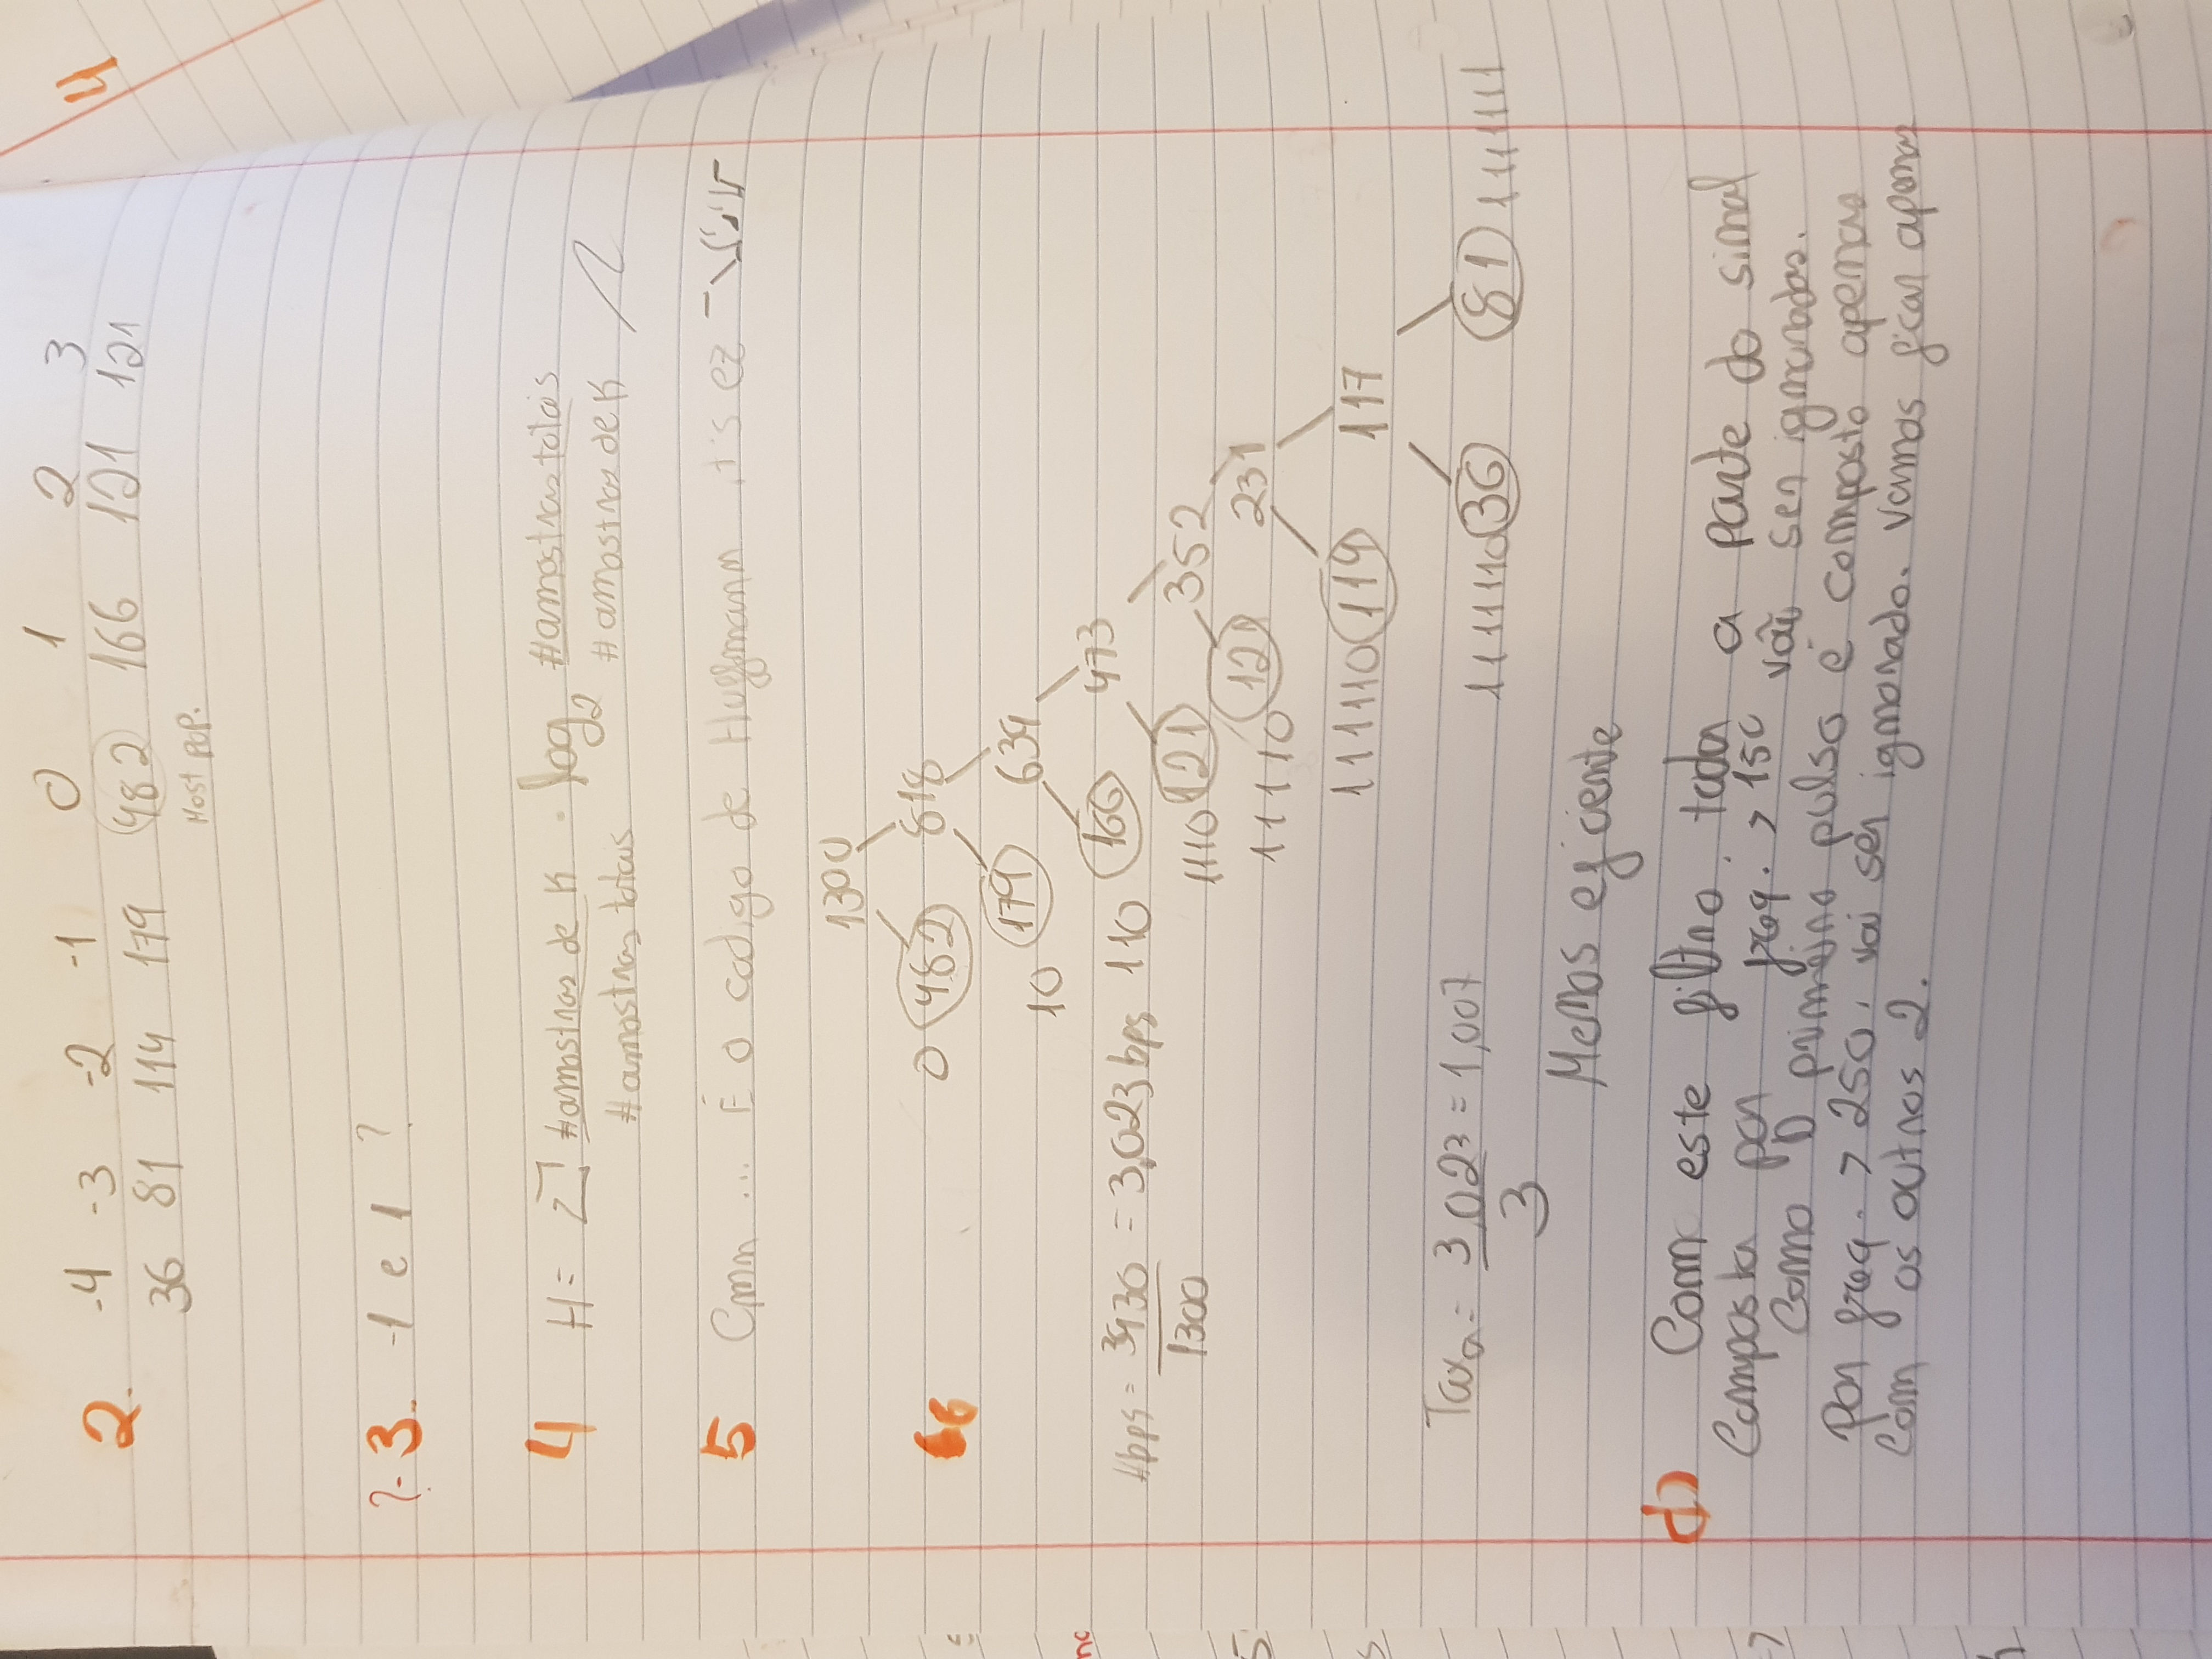 2. -4 -3 -2 -1 0 1 2 3
36 81 114 179 482 166 121 121
Most pop.
4
?- 3. -1 e 1 ?
4 H = Σ #amostras de K / #amostras totais . log2 #amostras totais / #amostras de K
5 Cmm ... É o codigo de Huffmann it's ez
1300
6 0 482 818
10 179 639
Hbps = 3930 / 1300 = 3,023 bps 110 166 473
1110 121 352
11110 121 231
111110 114 117
Taxa = 3,023 / 3 = 1,007
1111110 36 81 1111111
Menos eficiente
d) Com este filtro, toda a parte do sinal
composta por freq. > 150 vão ser ignoradas.
Como o primeiro pulso é composto apenas
por freq. > 250, vai ser ignorado. Vamos ficar apenas
com os outros 2.